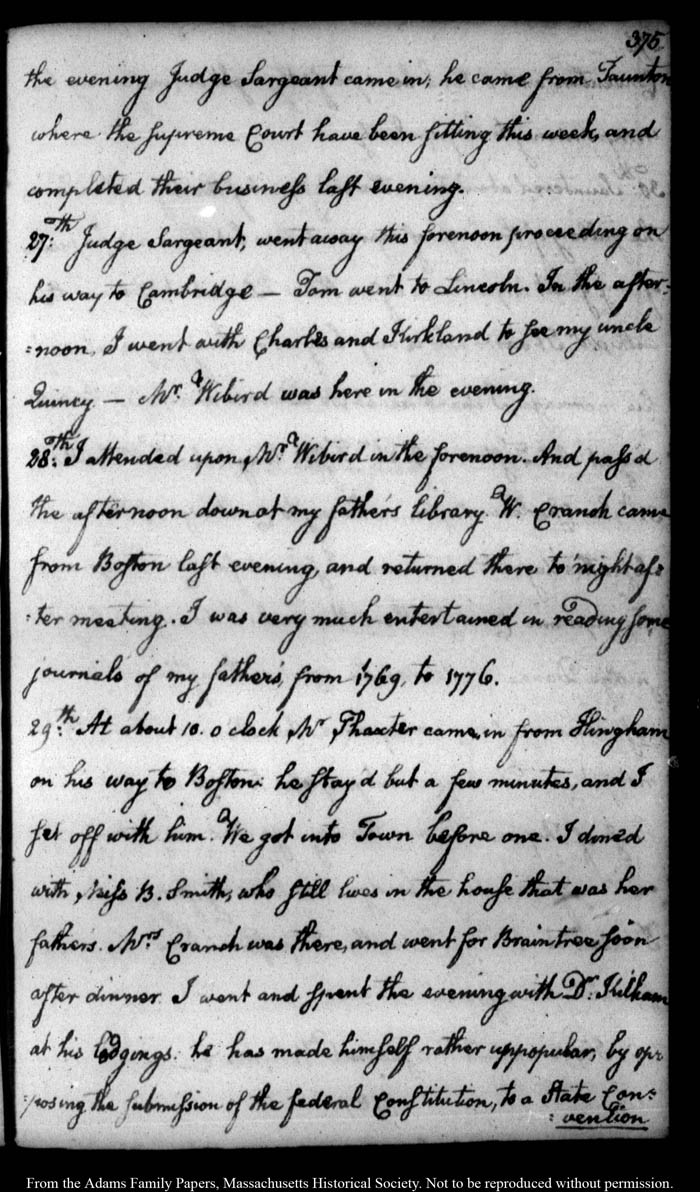 375
the evening Judge Sargeant came in; he came from Taunton
where the supreme Court have been sitting this week, and
completed their business last evening.
27:th Judge Sargeant, went away this forenoon proceeding on
his way to Cambridge — Tom went to Lincoln. In the after-
:noon, I went with Charles and Kirkland to see my uncle
Quincy. — Mr. Wibird was here in the evening.
28:th I attended upon Mr. Wibird in the forenoon. And pass'd
the afternoon down at my father's library. W. Cranch came
from Boston last evening, and returned there to'night af:
:ter meeting. I was very much entertained in reading some
journals of my father's, from 1769, to 1776.
29:th At about 10. o clock Mr Thaxter came, in from Hingham
on his way to Boston: he stay'd but a few minutes, and I
set off with him. We got into Town before one. I dined
with Miss B. Smith, who still lives in the house that was her
fathers. Mrs Cranch was there, and went for Braintree soon
after dinner. I went and spent the evening with Dr. Kilham
at his lodgings. he has made himself rather unpopular, by op:
:posing the submission of the federal Constitution, to a State Con:
:vention
From the Adams Family Papers, Massachusetts Historical Society. Not to be reproduced without permission.